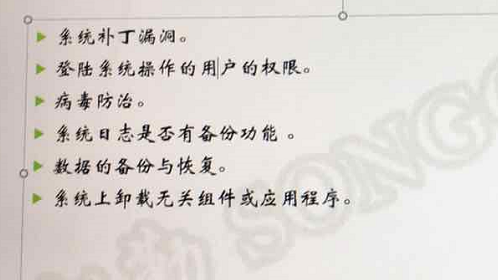 系统补丁漏洞。
登陆系统操作的用户的权限。
病毒防治。
系统日志是否有备份功能 。
数据的备份与恢复。
系统上卸载无关组件或应用程序。
SONG